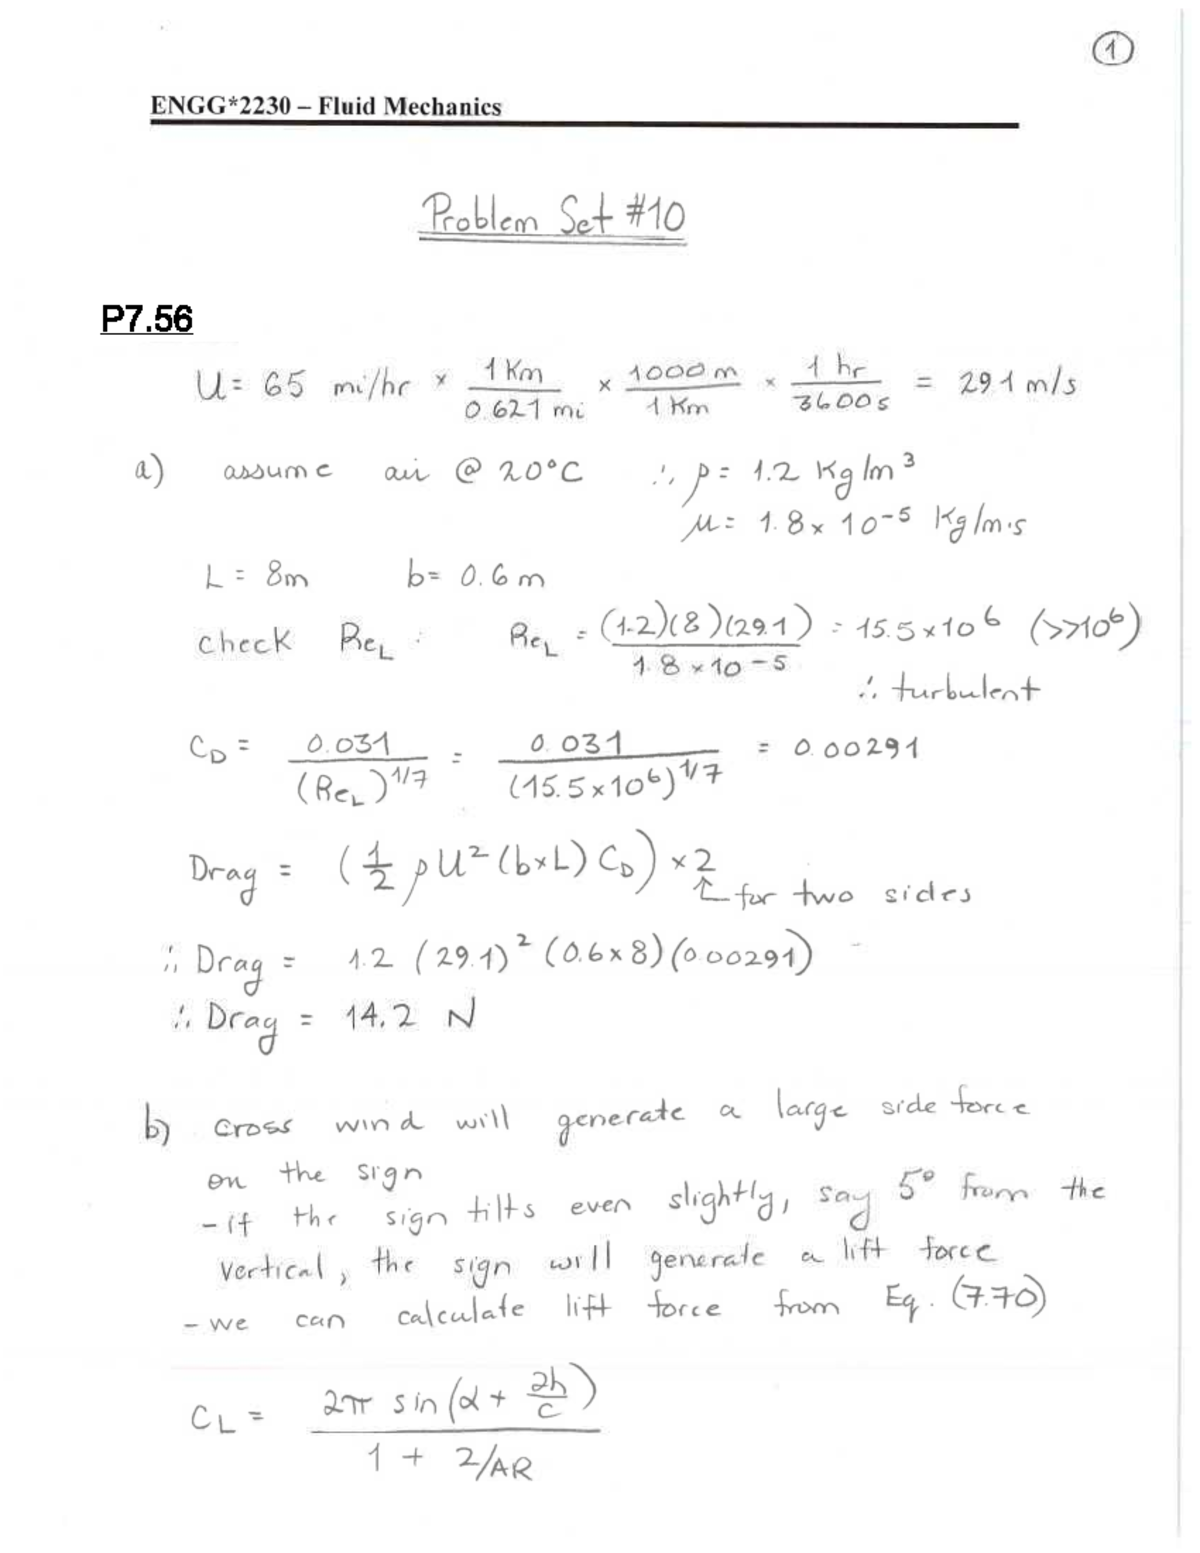 1
ENGG*2230 – Fluid Mechanics
Problem Set #10
P7.56
U = 65 mi/hr × 1 Km / 0.621 mi × 1000 m / 1 Km × 1 hr / 3600 s = 29.1 m/s
a) assume air @ 20°C ∴ ρ = 1.2 Kg/m³
μ = 1.8 × 10⁻⁵ Kg/m·s
L = 8m b = 0.6 m
check Re_L : Re_L = (1.2)(8)(29.1) / 1.8 × 10⁻⁵ = 15.5 × 10⁶ (>>10⁶)
∴ turbulent
C_D = 0.031 / (Re_L)^1/7 = 0.031 / (15.5 × 10⁶)^1/7 = 0.00291
Drag = (1/2 ρU² (b×L) C_D) × 2
for two sides
∴ Drag = 1.2 (29.1)² (0.6 × 8)(0.00291)
∴ Drag = 14.2 N
b) cross wind will generate a large side force
on the sign
- if the sign tilts even slightly, say 5° from the
vertical, the sign will generate a lift force
- we can calculate lift force from Eq. (7.70)
C_L = 2π sin(α + 2h/c) / 1 + 2/AR